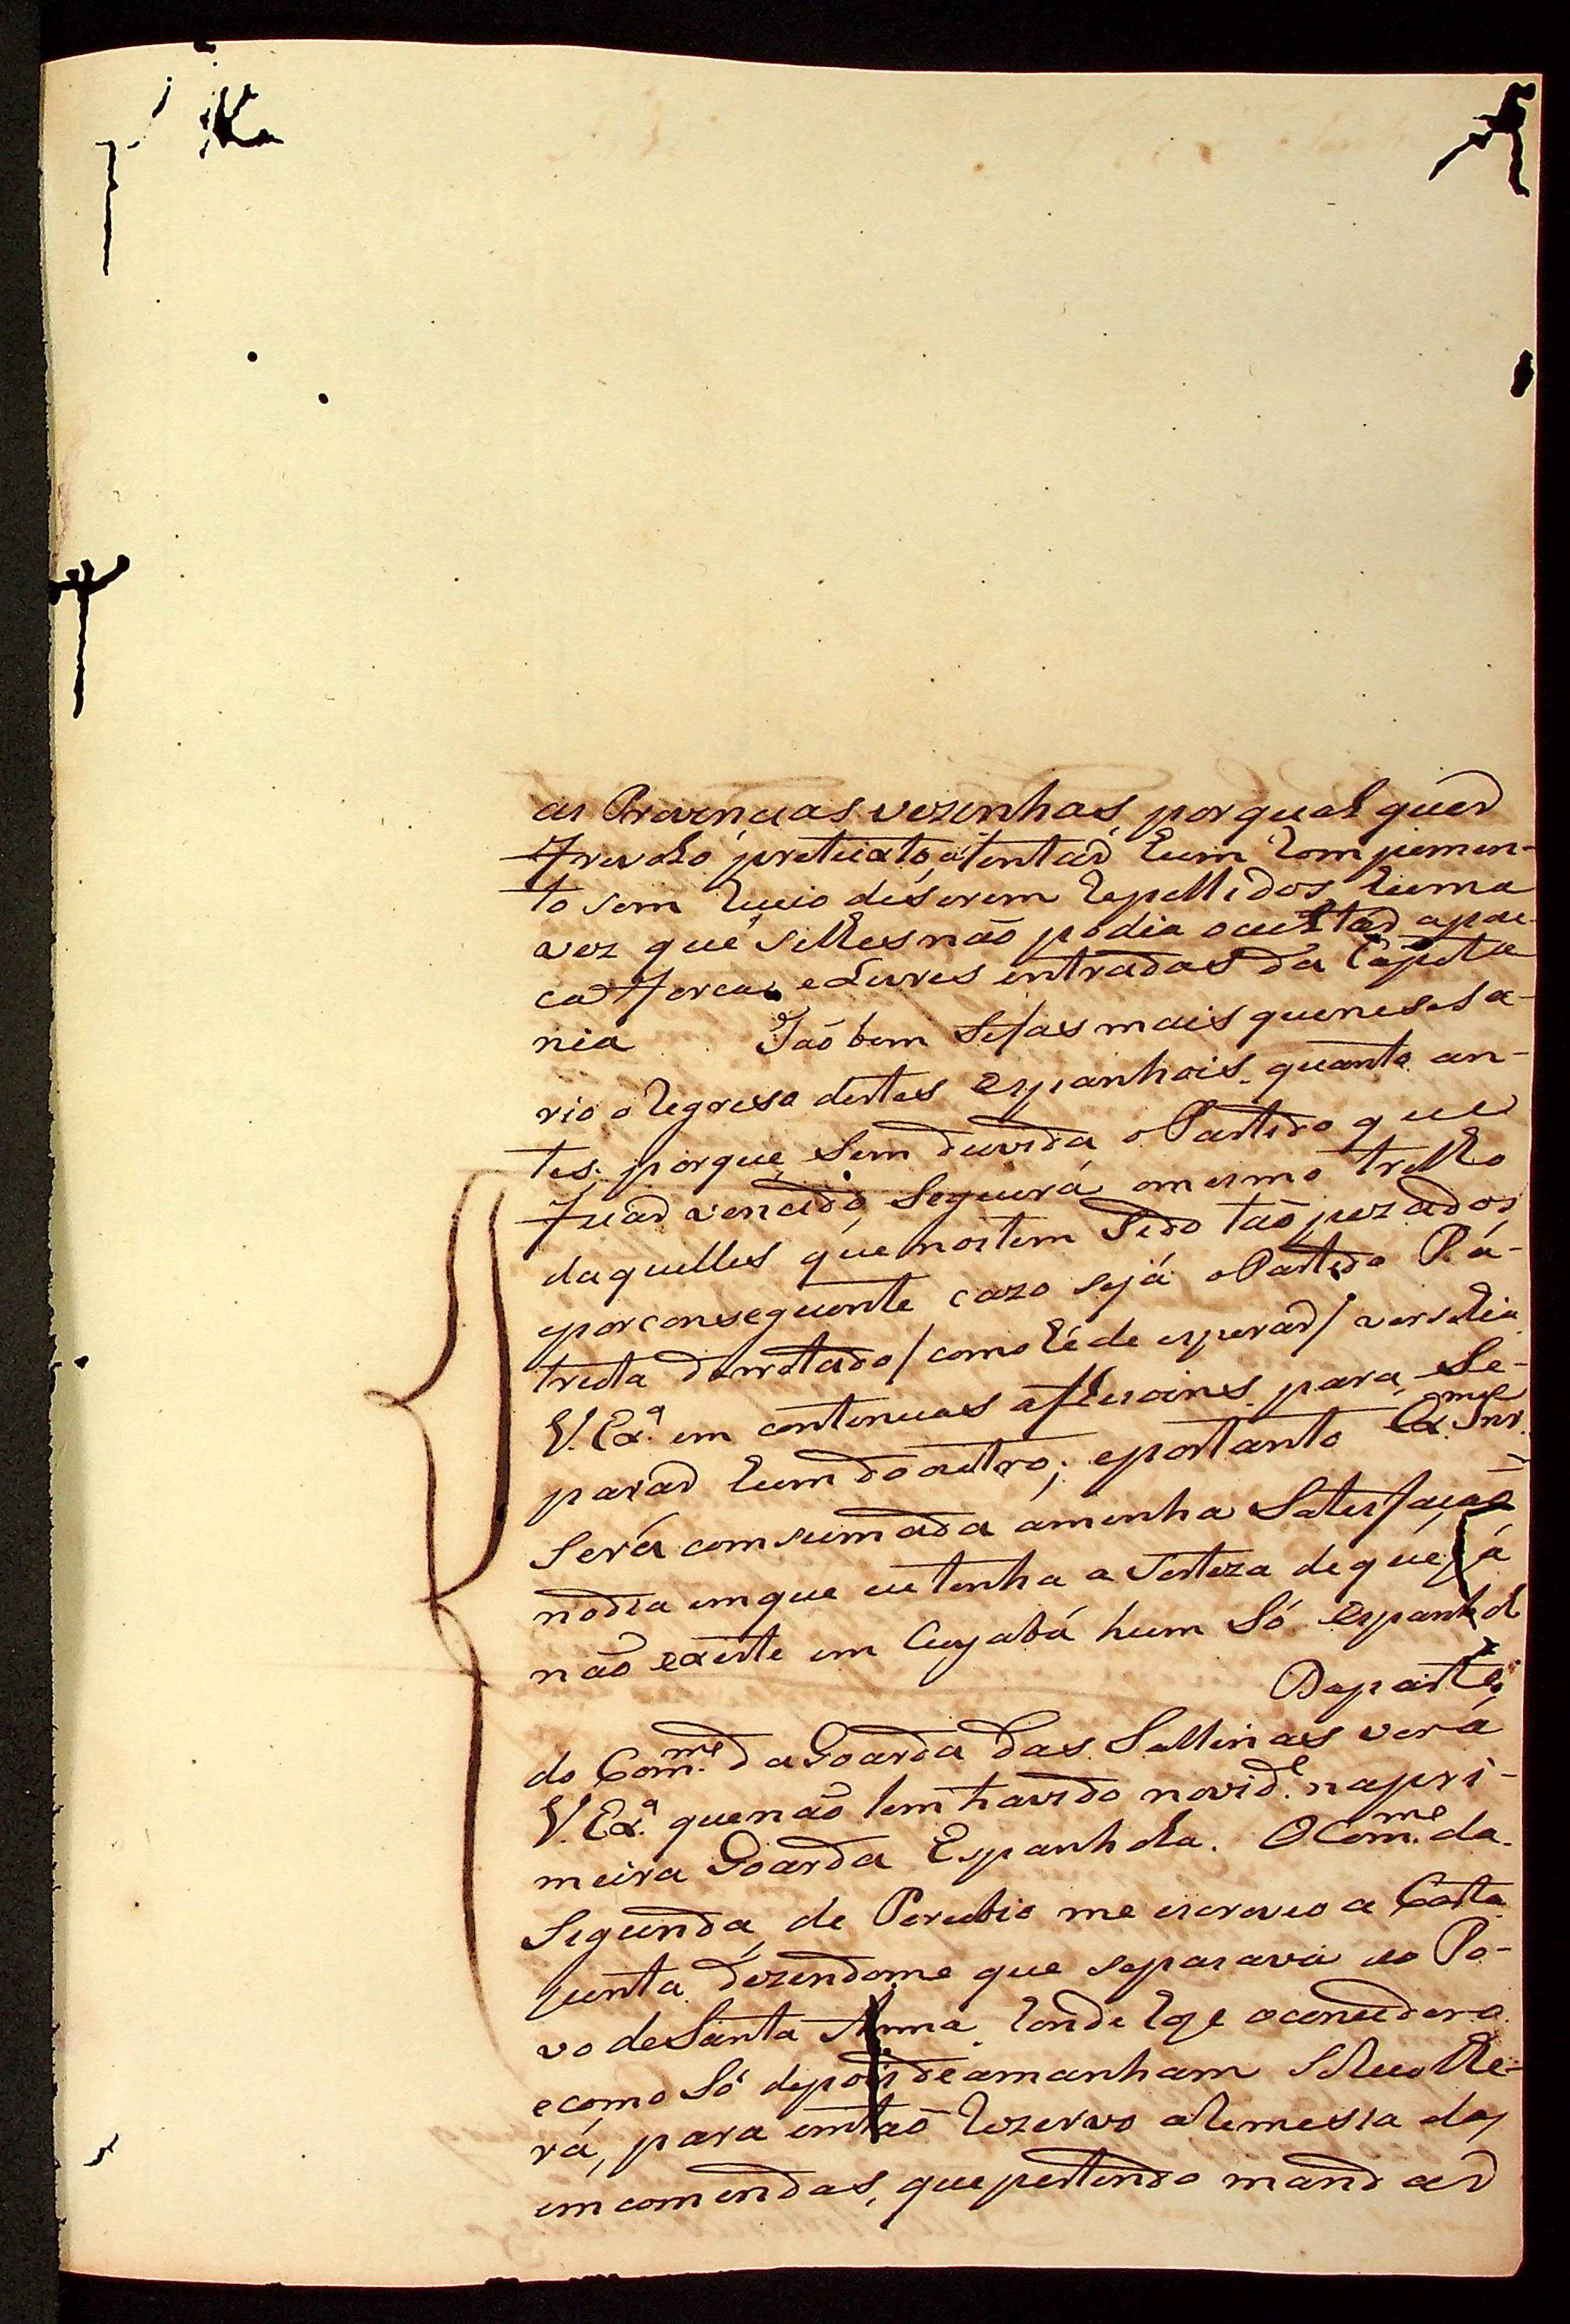 as Provincias vezinhas, por qualquer
frivolo pretexto, atentar hum rompimen-
to sem receio de serem repellidos huma
vez que selhes não podia ocultar a pou-
ca força, e Livres entradas da Capita
nia Taõ bem Se fas mais que nesesa-
rio o regreso destes Espanhois quanto an-
tes; porque Sem duvida o Partido que
ficar vencido, Seguirá omesmo trilho
daquelles que nos tem Sido taõ pezados,
eporconseguente cazo sejá oPartido Pá-
treota derrotado / como hé de esperar / versehia
V. Exª em continuas afliçoines para Se-
parar hum do outro; eportanto Exmº Snr.
Será comsumada aminha Satisfação
nodia emque eu tenha a Serteza de que já
não existe em Cuyabá hum Só Espanhol
Daparte
do Comme da Goarda das Sallinas verá
V. Exª que não tem havido novide napri-
meira Goarda Espanhola. O Comme da
Segunda, de Perubio me escreveo a Carta
junta dezendome que separava ao Po-
vo de Santa Anna honde hoje o concidero
ecomo Só depois de amanham
rá, para então rezervo aRemessa das
emcomendas, que pertendo mandar